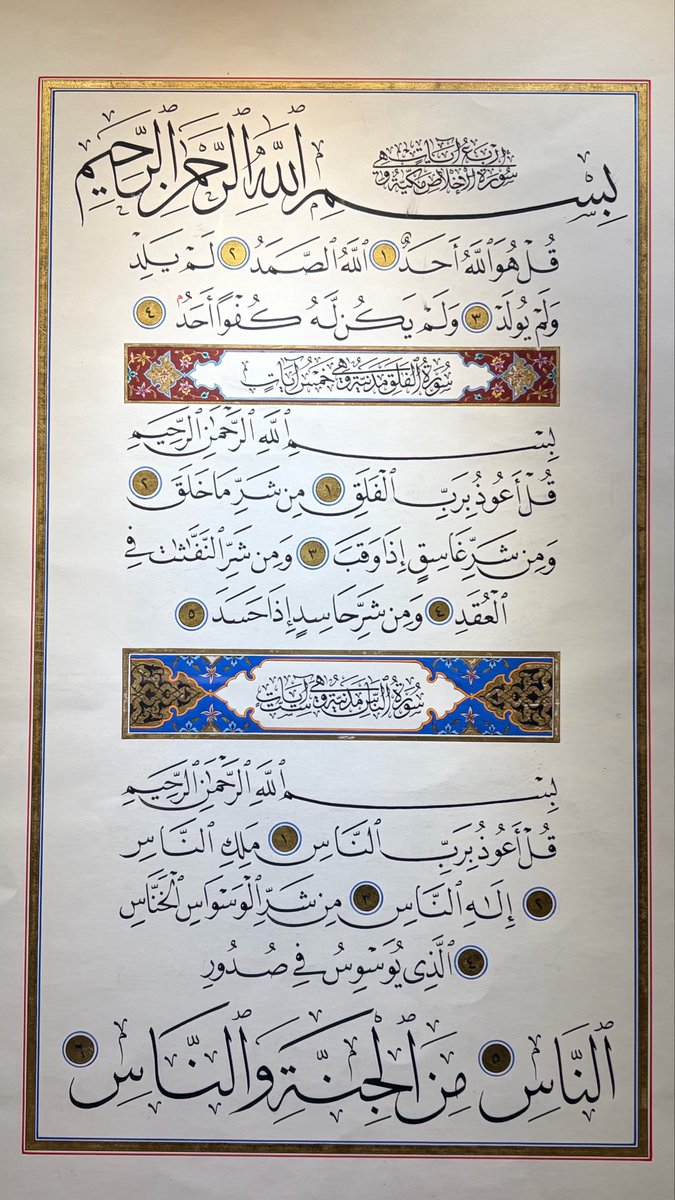 بِسْمِ اللَّهِ الرَّحْمَٰنِ الرَّحِيمِ
سُورَةُ الْإِخْلَاصِ مَكِّيَّةٌ وَهِيَ أَرْبَعُ آيَاتٍ
قُلْ هُوَ اللَّهُ أَحَدٌ ١ اللَّهُ الصَّمَدُ ٢ لَمْ يَلِدْ
وَلَمْ يُولَدْ ٣ وَلَمْ يَكُن لَّهُ كُفُوًا أَحَدٌ ٤
سُورَةُ الْفَلَقِ مَدَنِيَّةٌ وَهِيَ خَمْسُ آيَاتٍ
بِسْمِ اللَّهِ الرَّحْمَٰنِ الرَّحِيمِ
قُلْ أَعُوذُ بِرَبِّ الْفَلَقِ ١ مِن شَرِّ مَا خَلَقَ ٢
وَمِن شَرِّ غَاسِقٍ إِذَا وَقَبَ ٣ وَمِن شَرِّ النَّفَّٰثَٰتِ فِي
الْعُقَدِ ٤ وَمِن شَرِّ حَاسِدٍ إِذَا حَسَدَ ٥
سُورَةُ النَّاسِ مَدَنِيَّةٌ وَهِيَ سِتُّ آيَاتٍ
بِسْمِ اللَّهِ الرَّحْمَٰنِ الرَّحِيمِ
قُلْ أَعُوذُ بِرَبِّ النَّاسِ ١ مَلِكِ النَّاسِ
٢ إِلَٰهِ النَّاسِ ٣ مِن شَرِّ الْوَسْوَاسِ الْخَنَّاسِ
٤ الَّذِي يُوَسْوِسُ فِي صُدُورِ
النَّاسِ ٥ مِنَ الْجِنَّةِ وَالنَّاسِ ٦